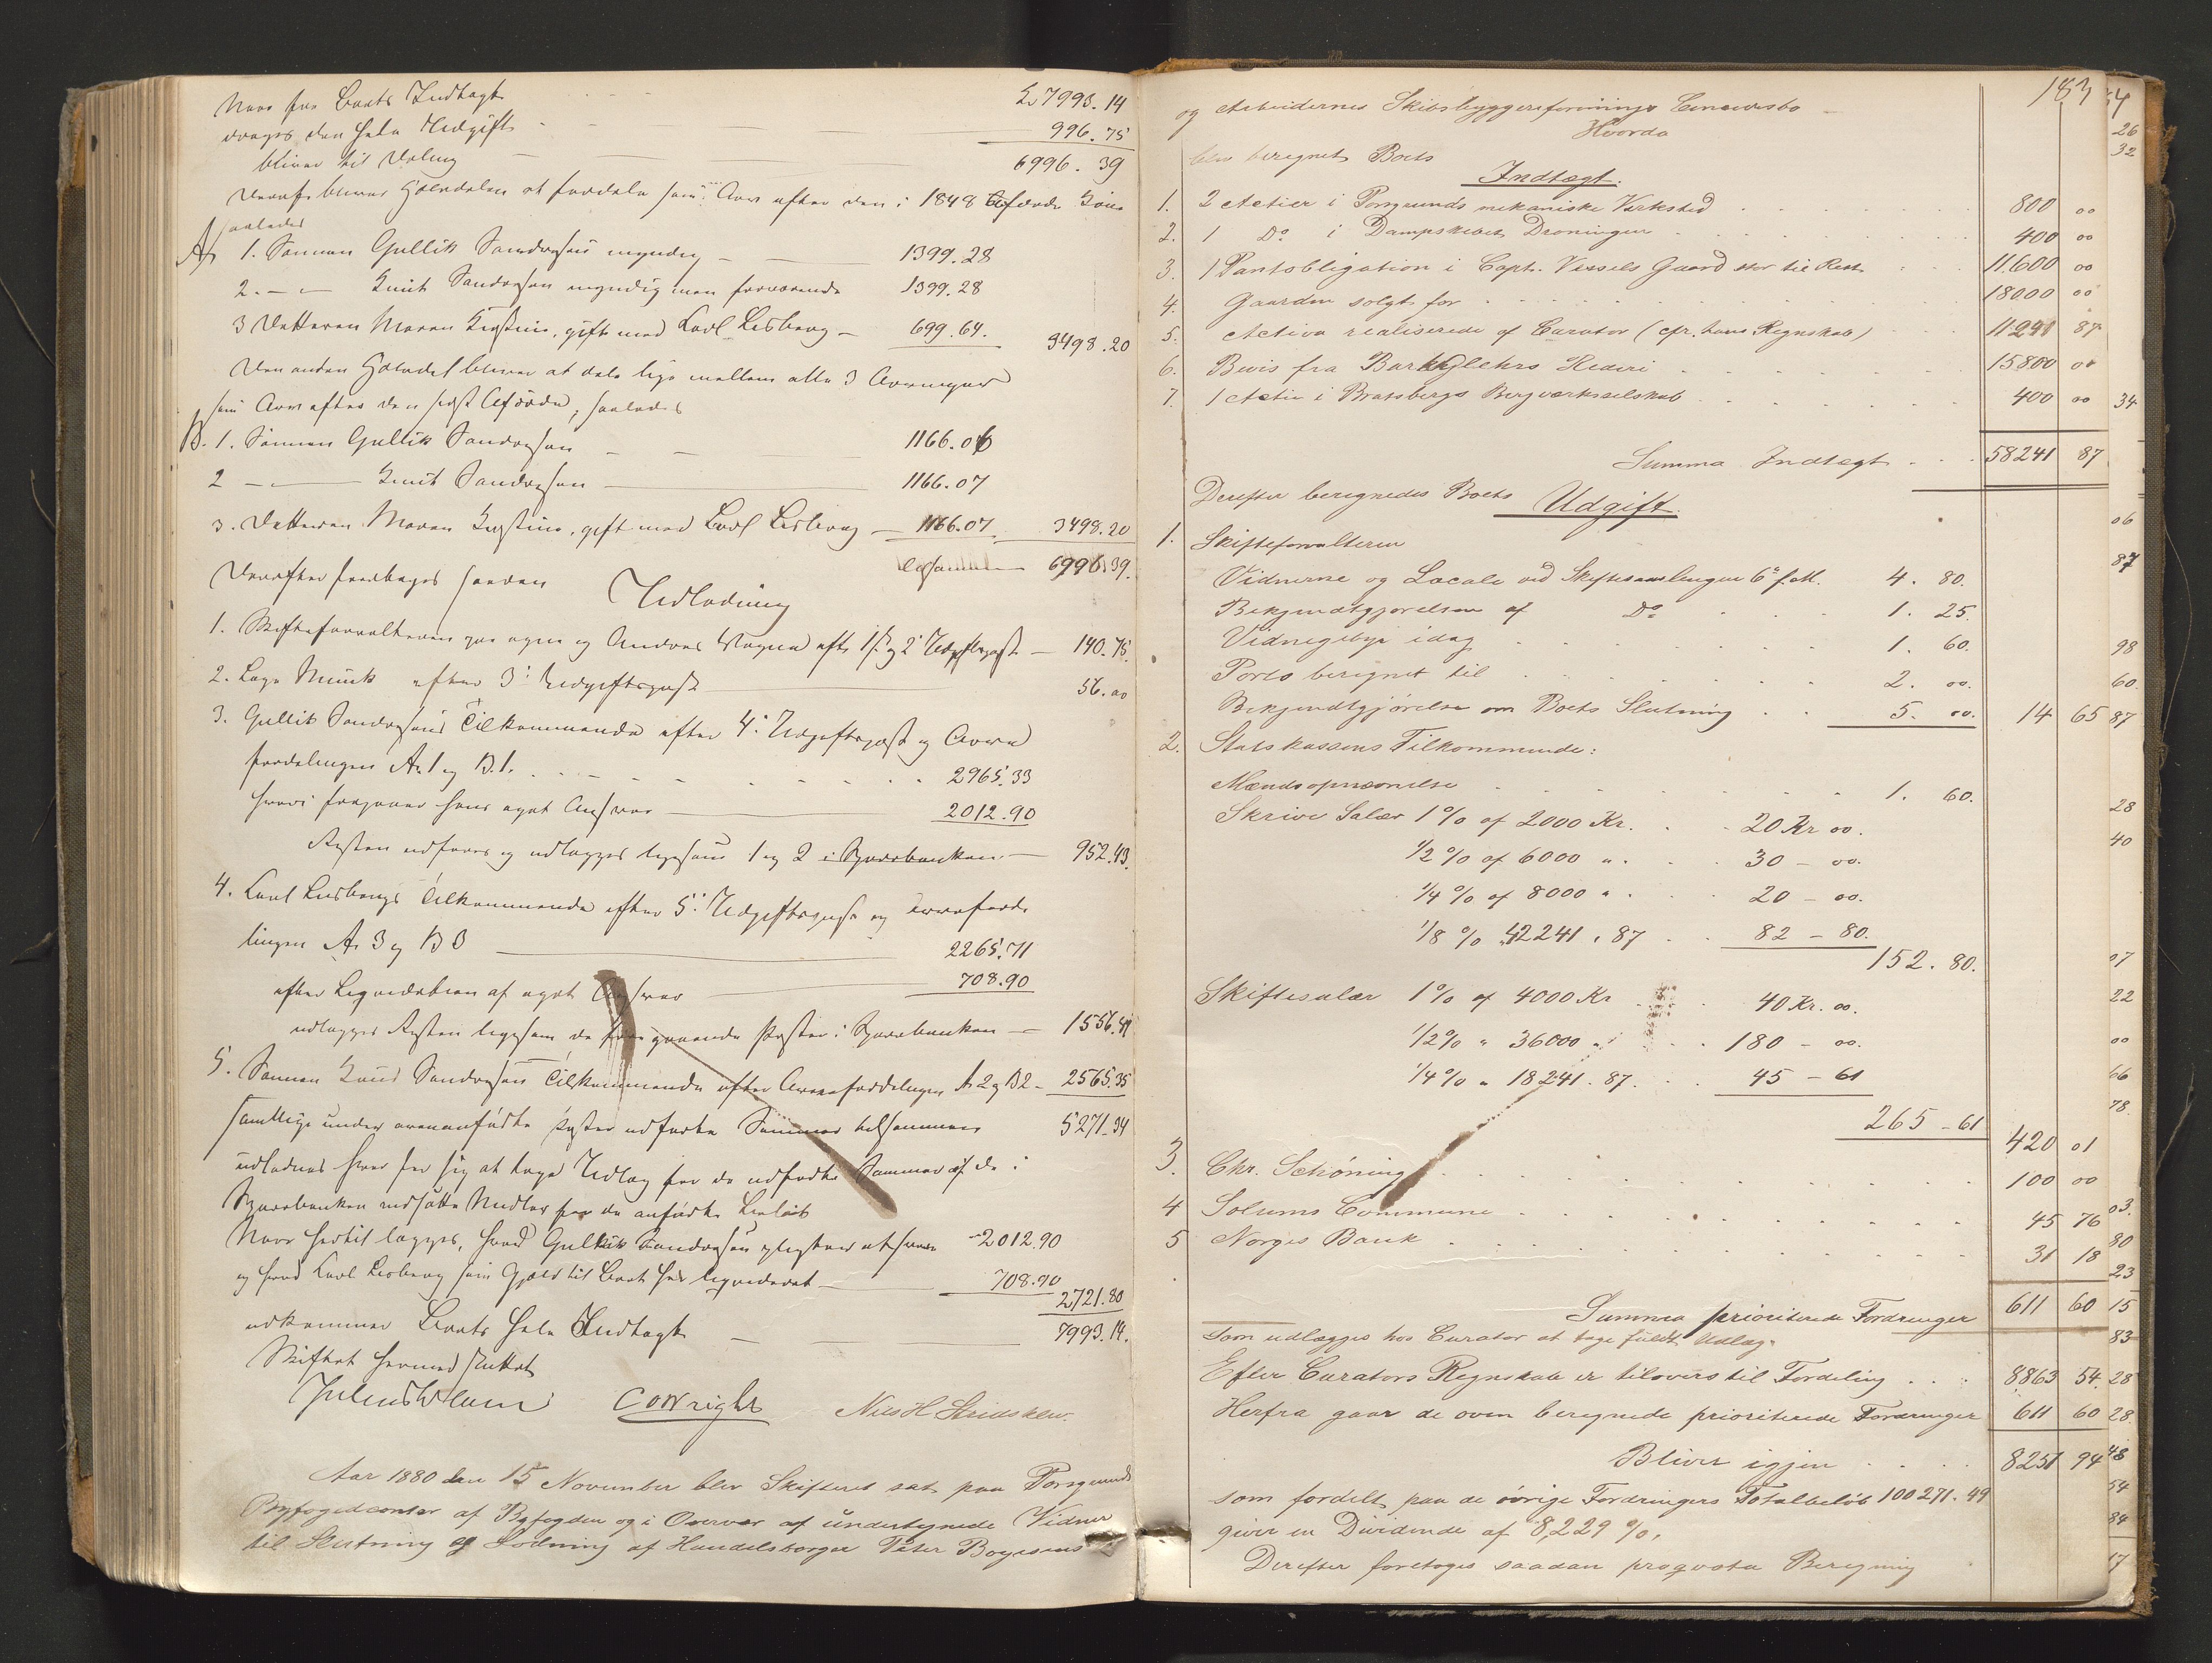 Naar fra Boets Indtægt Kr 7993.14
drages den hele Udgift 996.75
bliver til Deling 6996.39
Deraf bliver Halvdelen at fordele som Arv efter den i 1848 afdøde Kone
saaledes
A 1. Sønnen Gullik Sondresen myndig 1399.28
2. — Knut Sondresen myndig men fraværende 1399.28
3 Datteren Maren Kirstine, gift med Carl Lisberg 699.64. 3498.20
Den anden Halvdel bliver at dele lige mellem alle 3 Arvinger
som Arv efter den sidst Afdøde, saaledes
B. 1. Sønnen Gullik Sondresen 1166.06
2 — Knut Sondresen 1166.07
3. Datteren Maren Kirstine, gift med Carl Lisberg 1166.07 3498.20
6996.39.
Derefter foretages saadan Udlodning
1. Skifteforvalteren paa egne og Andres Vegne efter 1ste og 2 Udgiftspost 140.75.
2. Lage Munk efter 3' Udgiftspost 56.00
3. Gullik Sondresens Tilkommende efter 4' Udgiftspost og Arve
fordelingen A. 1 og B. 1. 2965.33
hvori fragaaer hans eget Ansvar 2012.90
Resten udføres og udlægges ligesom 1 og 2 i Sparebanken 952.43.
4. Carl Lisbergs Tilkommende efter 5' Udgiftspost og Arveforde
lingen A. 3 og B 3 2265.71
efter Liquidation af eget Ansvar 708.90
udlægges Resten ligesom de foregaaende Poster i Sparebanken 1556.81
5. Sønnen Knud Sondresens Tilkommende efter Arvefordelingen A 2 og B 2 2565.35
samtlige under ovenanførte Poster udførte Summer tilsammen 5271.34
udlodnes hver for sig at tage Udlæg for de udførte Summer af de i
Sparebanken indsatte Midler for de anførte Beløb
Naar hertil lægges, hvad Gullik Sondresen pligter at svare 2012.90
og hvad Carl Lisberg som Gjæld til Boet har liquideret 708.90
2721.80
udkommer Boets hele Indtægt 7993.14.
Skiftet hermed sluttet
C O Wright Niels H. Stridsklev.
Aar 1880 den 15 November blev Skifteret sat paa Porsgrunds
Byfogedcontor af Byfogden og i Overvær af undertegnede Vidner
til Slutning og Lodning af Handelsborger Peter Boyesens
183
og Arbeidernes Skibsbyggeriforenings Concursbo
Hvorda
blev beregnet Boets
Indtægt.
1. 2 Actier i Porsgrunds mekaniske Værksted 800 00
2. 1 Do i Dampskibet Dronningen 400 00
3. 1 Pantobligation i Capt. Vessels Gaard stor til Rest 11.600 00
4. Gaarden solgt for 18000 00
5. Activa realiserede af Curator (cfr. hans Regnskab) 11241 87
6. Bevis fra Bark Glehrs Rederi 15800 00
7. 1 Actie i Bratsbergs Bergværksselskab 400 00
Summa Indtægt 58241 87
Derefter beregnedes Boets Udgift.
1. Skifteforvalteren
Vidnerne og Locale ved Skiftesamlingen 6te f. M. 4. 80.
Bekjendtgjørelsen af Do 1. 25.
Vidnegebyr idag 1. 60.
Porto beregnet til 2. 00.
Bekjendtgjørelse om Boets Slutning 5. 00. 14 65
2. Statskassens Tilkommende:
Mændsopnævnelse 1. 60.
Skrive Salær 1 % af 2000 Kr. 20 Kr 00.
1/2 % af 6000 " 30 - 00.
1/4 % af 8000 " 20 - 00.
1/8 % " 42241 . 87 82 - 80.
152. 80.
Skiftesalær 1 % af 4000 Kr 40 Kr. 00.
1/2 % " 36000 " 180 - 00.
1/4 % " 18241 . 87. 45 - 61
265 - 61 420 01
3. Chr. Schöning 100 00
4 Solums Commune 45 76
5 Norges Bank 31 18
Summa prioriterede Fordringer 611 60
som udlægges hos Curator at tage fuldt Udlæg.
Efter Curators Regnskab er tilovers til Fordeling 8863 54.
Herfra gaar de oven beregnede prioriterede Fordringer 611 60
Bliver igjen 8251 94
som fordelt paa de øvrige Fordringers Totalbeløb 100271.49
giver en Dividende af 8,229 %.
Derefter foretoges saadan proqvota Beregning